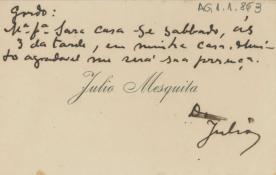 AG.1.1.863
Gordo:
Mª fª Sara casa-se sabbado, ás
3 da tarde, em minha casa. Mui-
to agradavel me será sua presença.
Julio Mesquita
Do
Julio